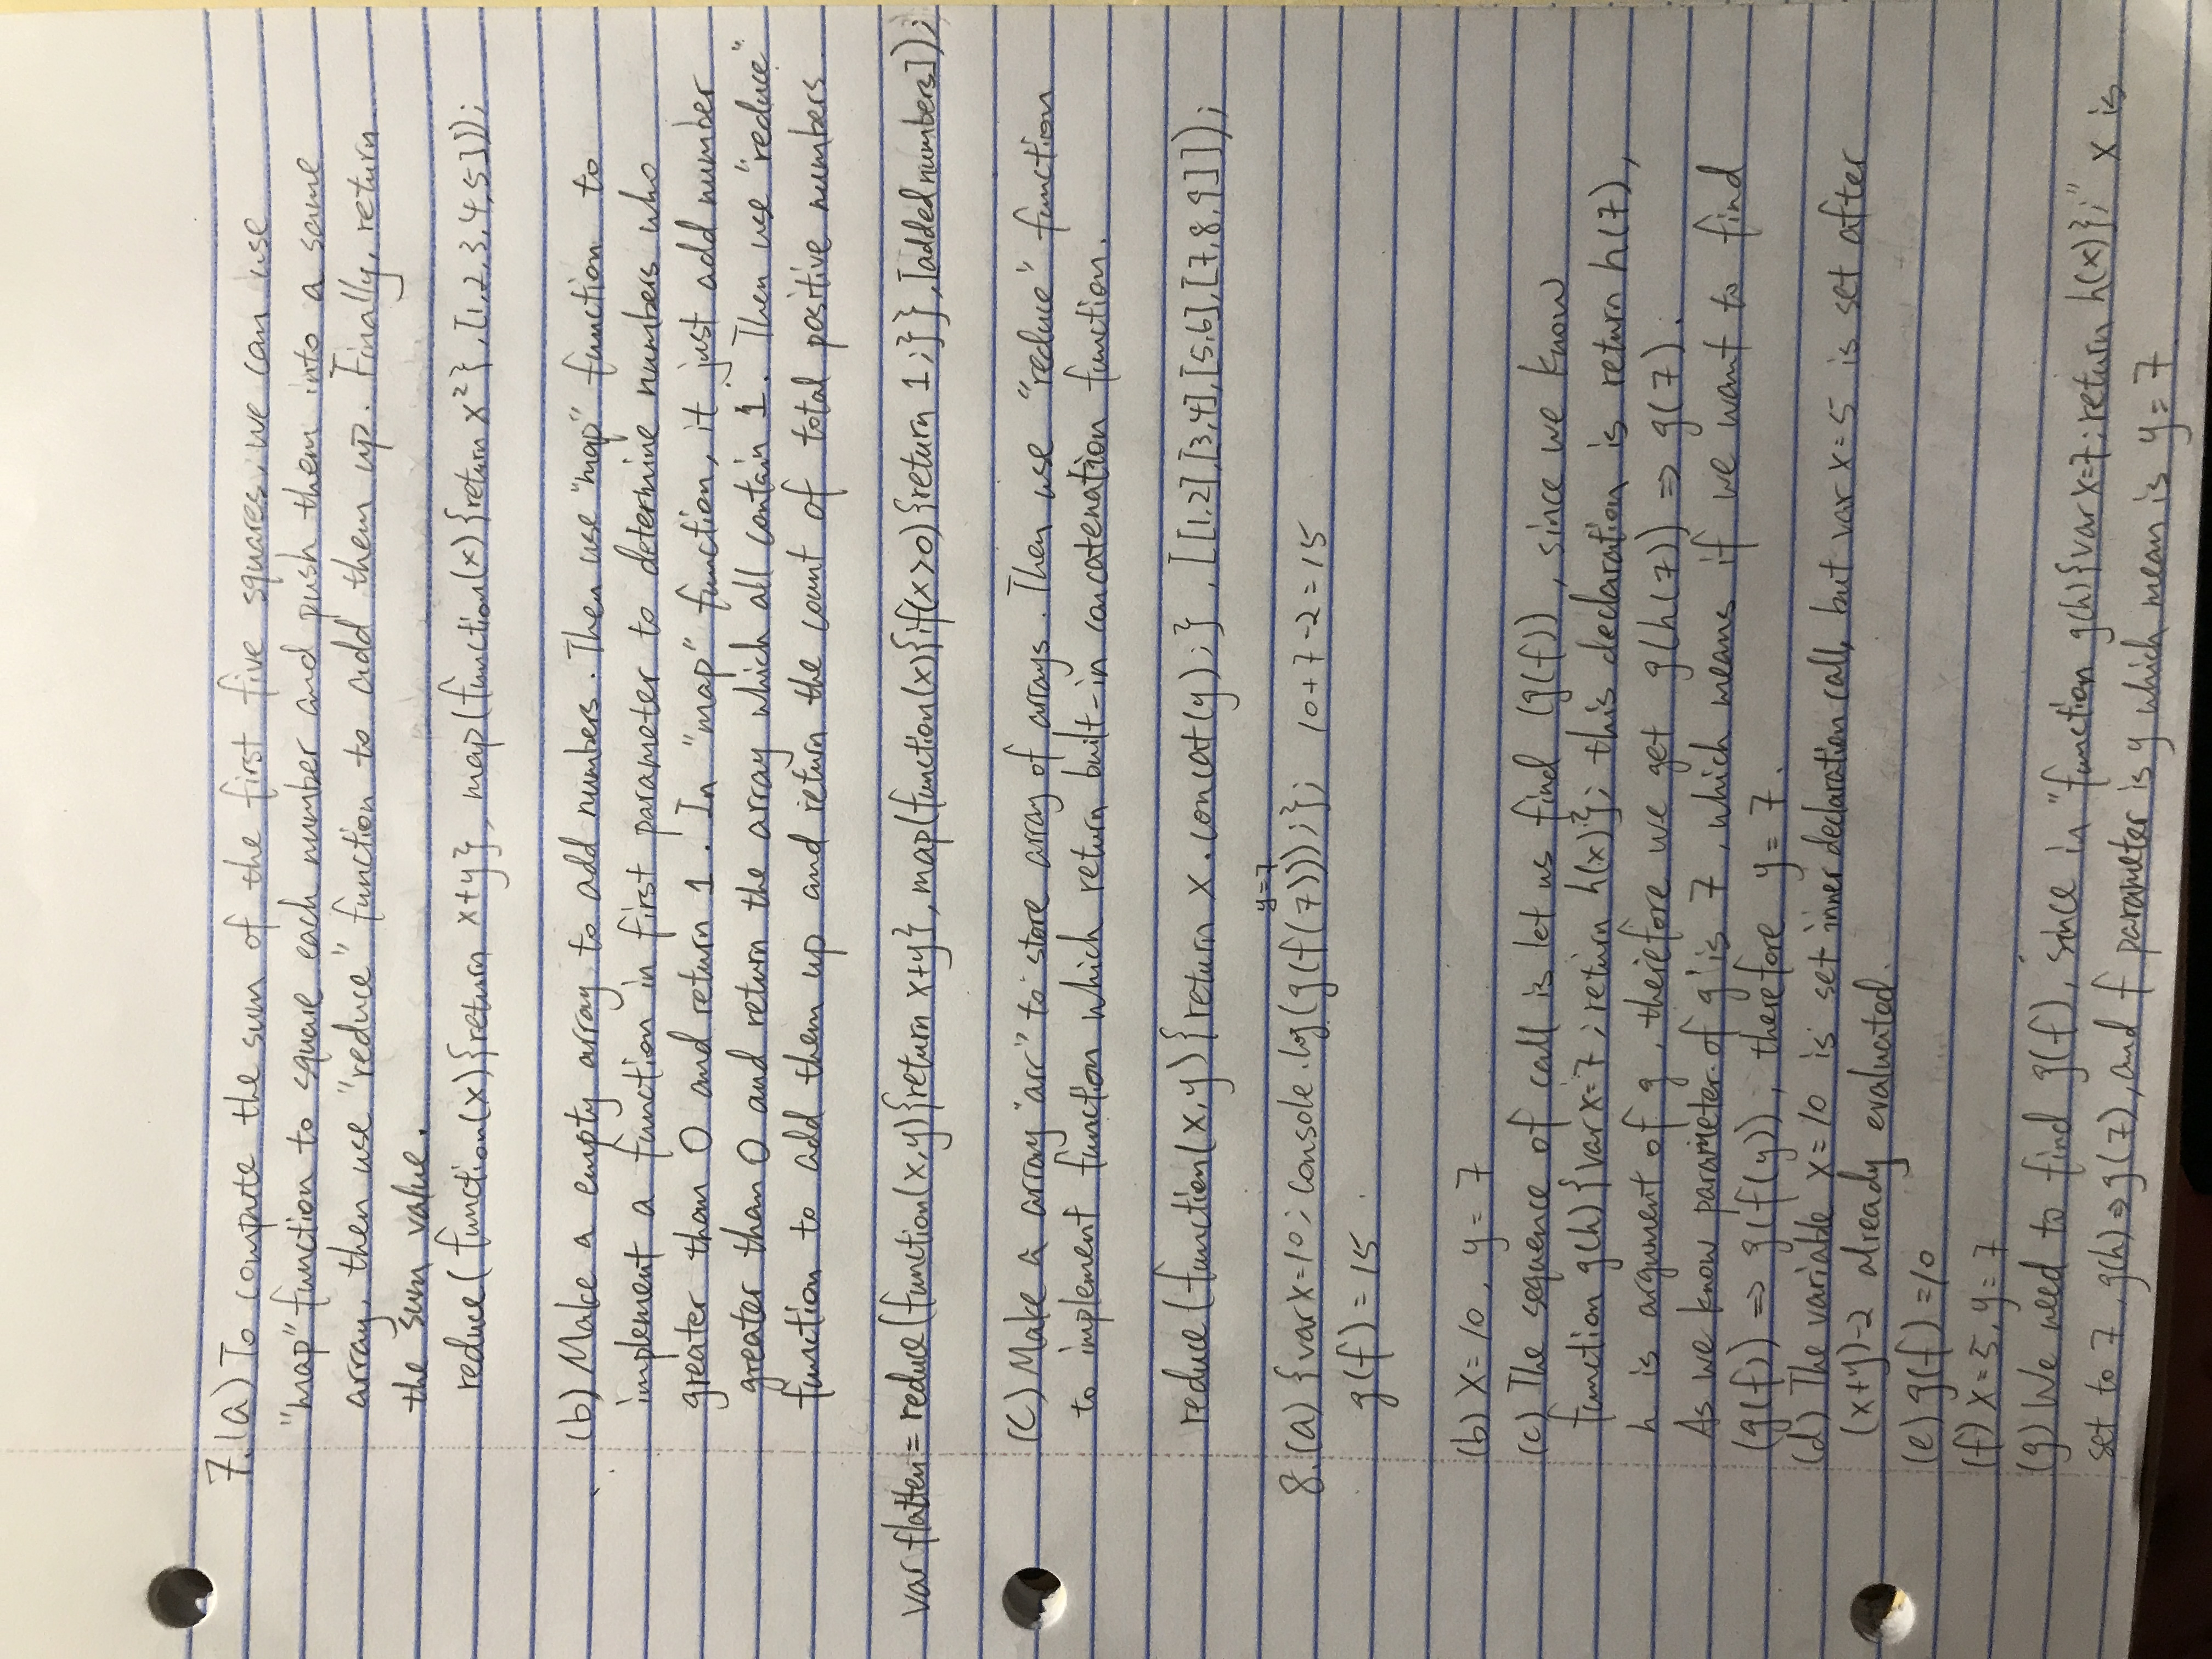 7.(a) To compute the sum of the first five squares, we can use
"map" function to square each number and push them into a same
array, then use "reduce" function to add them up. Finally, return
the sum value.
reduce(function(x){return x+y}, map(function(x){return x²}, [1,2,3,4,5]));
(b) Make a empty array to add numbers. Then use "map" function to
implement a function in first parameter to determine numbers who
greater than 0 and return 1. In "map" function, it just add number
greater than 0 and return the array which all contain 1. Then use "reduce"
function to add them up and return the count of total positive numbers.
var flatten = reduce(function(x,y){return x+y}, map(function(x){if(x>0){return 1;}}, [added numbers]);
(C) Make a array "arr" to store array of arrays. Then use "reduce" function
to implement function which return built-in concatenation function.
reduce(function(x,y){return x.concat(y);}, [[1,2],[3,4],[5,6],[7,8,9]]);
y=7
8.(a) {var x=10; console.log(g(f(7)));}; 10+7-2=15
g(f)=15.
(b) x=10, y=7
(c) The sequence of call is let us find (g(f)), since we know
function g(h){var x=7; return h(x)}; this declaration is return h(7),
h is argument of g, therefore we get g(h(7)) => g(7).
As we know parameter of g is 7, which means if we want to find
(g(f)) => g(f(y)), therefore y=7.
(d) The variable x=10 is set inner declaration call, but var x=5 is set after
(x+y)-2 already evaluated.
(e) g(f)=10
(f) x=5, y=7
(g) We need to find g(f), since in "function g(h){var x=7; return h(x)};" x is
set to 7, g(h) => g(7), and f parameter is y which mean is y=7